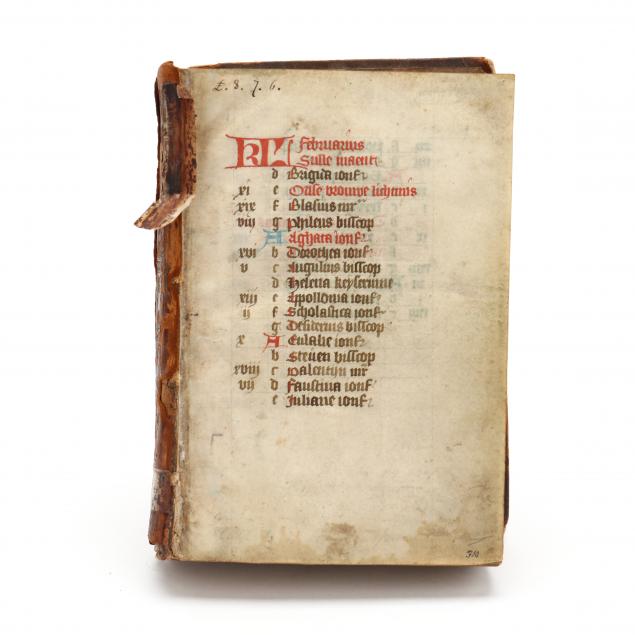 £. 8. 7. 6.
KL Februarius
Sulle maent
d Brigida ionf
xi e Onse vrouwe lichtmis
xix f Blasius mr
viij g Phileus bisscop
A Aghata ionf
xvi b Dorothea ionf
v c Augulius bisscop
d Helena keyserinne
xiij e Apollonia ionf
ij f Scholastica ionf
g Desiderius bisscop
x A Eulalie ionf
b Steven bisscop
xviij c Valentijn mr
vij d Faustina ionf
e Juliane ionf